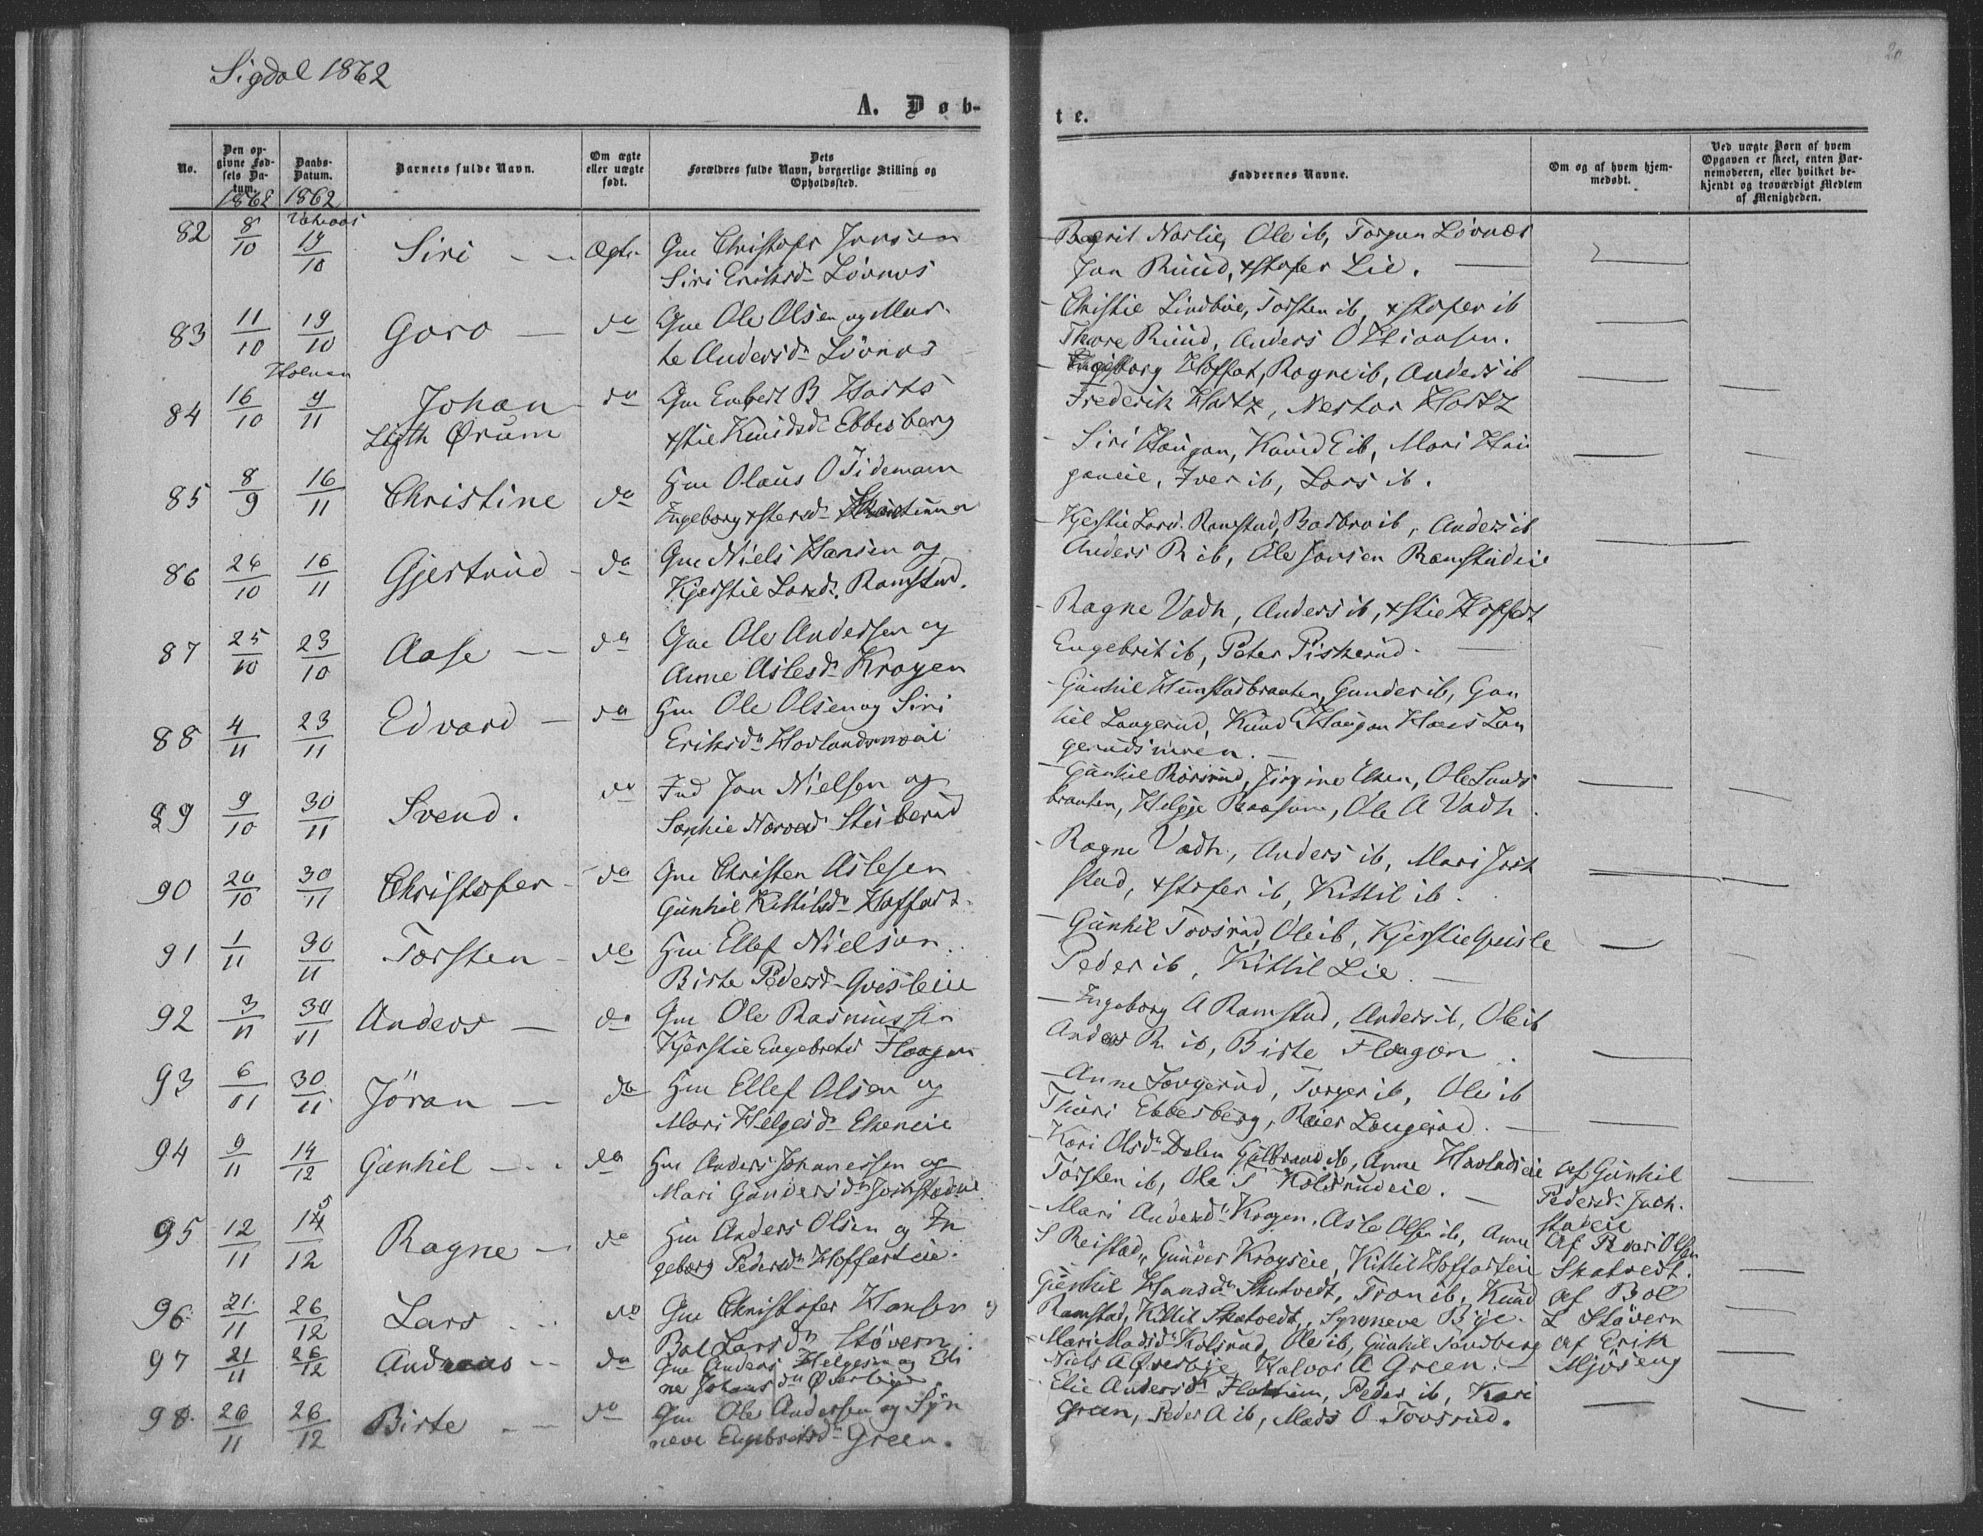 Sigdal 1862
A. Døb-
te.
20
No.
Den op-
givne Fød-
sels Da-
tum.
1862
Daabs-
Datum.
1862
Barnets fulde Navn.
Om ægte
eller uægte
født.
Dets
Forældres fulde Navn, borgerlige Stilling og
Opholdssted.
Faddernes Navne.
Om og af hvem hjem-
medøbt.
Ved uægte Børn af hvem
Opgaven er skeet, enten Bar-
nemoderen, eller hvilket be-
kjendt og troværdigt Medlem
af Menigheden.
82 8/10 19/10 Siri Ægte Gm Christofer Jonsen
Siri Eriksdr Lövnæs
Berit Norlie, Ole ib, Torgun Lövnæs
Jon Ruud, xstofer Lie.
83 11/10 19/10 Goro do Gm Ole Olsen og Mar-
te Andersdr Lövnæs
Christie Lindbøe, Torsten ib, xstofer ib
Thore Ruud, Anders O
Holmen
84 16/10 9/11 Johan do Gm Engbert B Hartz
Ligth Ørum xstie Knudsdr Ebbesberg
Ingeborg Hoffart, Ragne ib, Anders ib
Frederik Hartz, Nestor Hartz
85 8/9 16/11 Christine do Hm Olaus O Tidemann
Ingeborg xstersdr
Siri Haugan, Knud E ib, Mari Hau
ganeie, Iver ib, Lars ib.
86 26/10 16/11 Gjertrud do Gm Niels Hansen og
Kjerstie Larsdr. Ramstad.
Kjerstie Larsd. Ramstad, Barbro ib, Anders ib
Anders R ib, Ole Jonsen Ramstadeie
87 25/10 23/10 Aase do Gm Ole Andersen og
Anne Aslesdr Kragen
Ragne Vadh, Anders ib, xstie Hoffart
Engebrit ib, Peter Fiskerud.
88 4/11 23/11 Edvard do Hm Ole Olsen og Siri
Eriksdr Hovlandsmoeie
Gunhil Humstadbraaten, Gunder ib, Gun
hil Langerud, Knud Haugan Hans Lan
gerudsmoen.
89 9/10 30/11 Svend. do Ind Jon Nielsen og
Sophie Stuberud
Gunhil Rörsrud, Jörgine Eken, Ole Sands
braaten, Helge Raaen, Ole A Vadh
90 20/10 30/11 Christofer do Gm Christen Aslesen
Gunhil Kittilsdr Hoffart.
Ragne Vadh, Anders ib, Mari Joch
stad, xstofer ib, Kittil ib.
91 1/11 30/11 Torsten do Hm Ellef Nielsen
Birte Pedersdr Qvisleeie
Gunhil Tovsrud, Ole ib, Kjerstie Qvisle
Peder ib, Kittil Lie
92 3/11 30/11 Anders do Gm Ole Rasmussen
Kjerstie Engebretsd Flaagan
Ingeborg A Ramstad, Anders ib, Ole ib
Anders R ib, Birte Flaagan.
93 6/11 30/11 Jöran do Hm Ellef Olsen og
Mari Helgesdr Ekeneie
Anne Langerud, Torger ib, Ole ib
Thuri Ebbesberg, Reier Langerud.
94 9/11 14/12 Gunhil do Hm Anders Johanessen og
Mari Gundersdr Jonstadeie
Kari Olsdr Dalen Gulbrand ib, Anne Havladseie
Torsten ib, Ole T Kolsrudeie.
af Gunhil
Pedersd. Joch.
stadeie
95 12/11 14/12 Ragne do Hm Anders Olsen og In
geborg Pedersdr Hoffarteie.
Mari Andersdr Kragen, Asle Olsen ib, Anne
S Reistad, Gunder Kragseie, Kittil Hoffarteie
af Roar Olsen
Skatvedt.
96 21/11 26/12 Lars do Gm Christofer Hansen og
Bol Larsdr Støvern
Gunhil Hansdr Skatvedt, Tron ib, Knud
Ramstad, Kittil Skatvedt, Synneve Bye.
af Bol
L Støvern
97 21/11 26/12 Andreas do Gm Anders Helgesen og Eli
ne Johansdr Øverbye
Mari Madsdr Kolsrud, Ole ib, Gunhil Sandberg
Niels A Øverbye, Halvor A Green.
af Erik
Mjøseng
98 26/11 26/12 Birte do Gm Ole Andersen og Syn
neve Engebretsdr Green.
Elie Andersdr Flattum, Peder ib, Kari
Green, Peder A ib, Mads O Tovsrud.